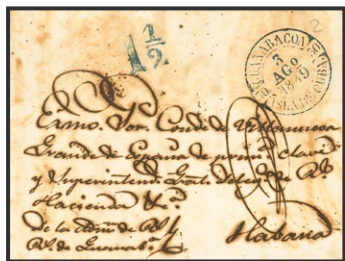 2
1 1/2
GUANABACOA
3
AGO
1849
ISLA DE CUBA
Exmo. Sor. Conde de Villanueva
Grande de España de primera clase
y Superintend. Gral. deleg.do de Rl.
Hacienda &c.ª
de la admon de Rs.
Rs. de Guanab.ª
Habana